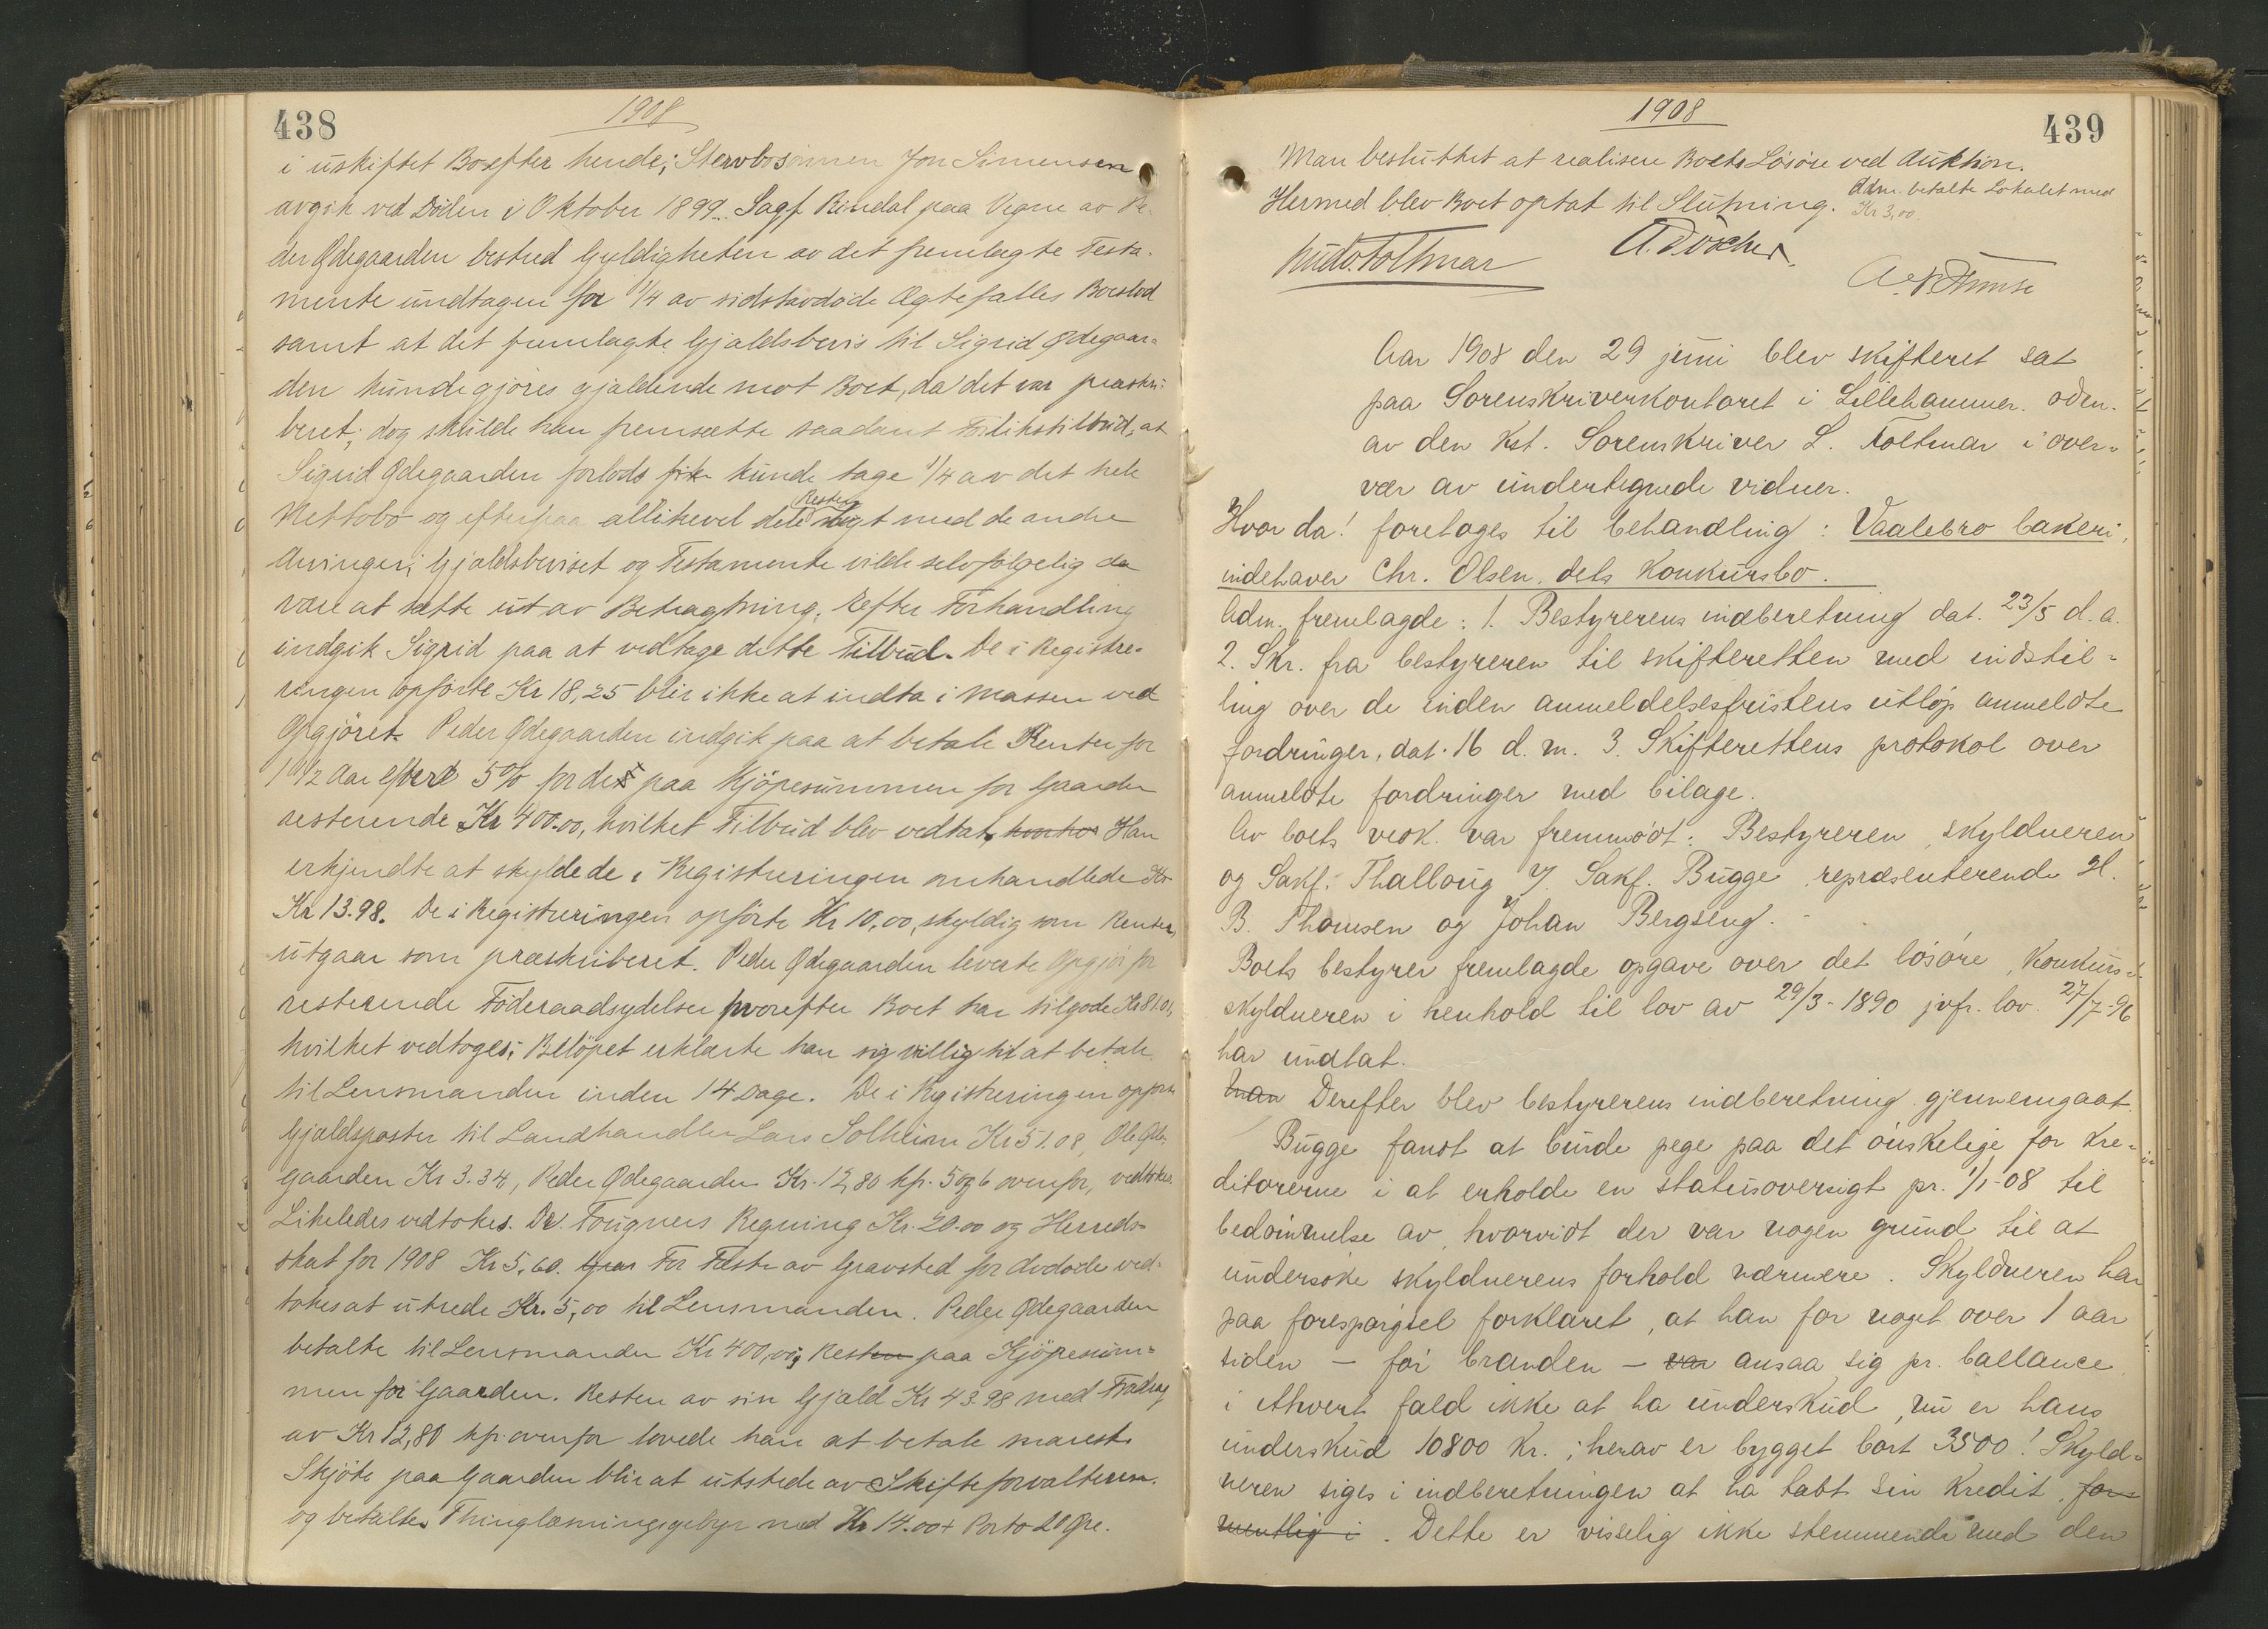 438
1908
i uskiftet Bo efter hende; Stervbosönnen Jon Simensen
avgik ved Döden i Oktober 1899. Sagf Rindal paa Vegne av Pe-
der Ødegaarden bestred Gyldigheten av det fremlagte Testa-
mente undtagen for 1/4 av sidstavdöde Ægtefælles Boeslod
samt at det fremlagte Gjældsbevis til Sigrid Ødegaar-
den kunde gjöres gjældende mot Boet, da det var præskri-
beret; dog skulde han fremsætte saadant Forlikstilbud, at
Sigrid Ødegaarden forlods fik kunde tage 1/4 av det hele
Nettobo og efterpaa allikevel dele Resten likt med de andre
Arvinger; Gjældsbeviset og Testamente vilde selvfölgelig da
være at sætte ut av Betragtning. Efter Forhandling
indgik Sigrid paa at vedtage dette Tilbud. De i Registre-
ringen opförte Kr 18,25 blir ikke at indta i Massen ved
Opgjöret. Peder Ødegaarden indgik paa at betale Renter for
1 1/2 Aar efter 5% for det paa Kjöpesummen for Gaarden
resterende Kr 400.00, hvilket Tilbud blev vedtat. Han
erkjendte at skylde de i Registreringen omhandlede Kr
Kr 13.98. De i Registreringen opförte Kr 10,00, skyldig som Renter,
utgaar som præskriberet. Peder Ødegaarden leverte Opgjör for
resterende Föderaadsydelser hvorefter Boet har tilgode Kr 81.01,
hvilket vedtoges; Belöpet erklærte han sig villig til at betale
til Lensmanden inden 14 Dage. De i Registreringen opförte
Gjældsposter til Landhandler Lars Solheim Kr 51.08, Ole Øde-
gaarden Kr 3.34, Peder Ødegaarden Kr. 12,80 kfr. 5 og 6 ovenfor, vedtokes.
Likeledes vedtokes Dr. Fougners Regning Kr. 20.00 og Herreds-
skat for 1908 Kr 5,60. For Fæste av Gravsted for Avdöde ved-
tokes at utrede Kr. 5,00 til Lensmanden. Peder Ødegaarden
betalte til Lensmanden Kr 400,00, Resten paa Kjöpesum-
men for Gaarden. Resten av sin Gjæld Kr 43.98 med Fradrag
av Kr 12,80 kfr. ovenfor lovede han at betale snarest.
Skjöte paa Gaarden blir at utstede av Skifteforvalteren.
og betaltes Thinglæsningsgebyr med Kr 14.00 + Porto 20 Øre.
1908
439
Man besluttet at realisere Boets Lösöre ved Auktion.
Hermed blev Boet optat til Slutning. Adm. betalte Lokalet med
Kr 3,00.
Aar 1908 den 29 juni blev skifteret sat
paa Sorenskriverkontoret i Lillehammer. adm.
av den kst. Sorenskriver L. Toltmar i over-
vær av undertegnede vidner.
Hvor da! foretoges til behandling: Vaalebro bakeri,
indehaver Chr. Olsen, dets Konkursbo.
Adm. fremlagde: 1. Bestyrerens indberetning dat. 23/5 d.a.
2. Skr. fra bestyreren til skifteretten med indstil-
ling over de inden anmeldelsesfristens utlöp anmeldte
fordringer, dat. 16 d. m. 3. Skifterettens protokol over
anmeldte fordringer med bilage.
Av boets vedk. var fremmödt: Bestyreren, skyldneren
og Sakf. Thallaug f. Sakf. Bugge repræsenterende H.
B. Thomsen og Johan Bergseng.
Boets bestyrer fremlagde opgave over det lösöre, konkurs-
skyldneren i henhold til lov av 29/3-1890 jvfr. lov 27/7-96
har undtat.
Man Derefter blev bestyrerens indberetning gjennemgaat.
Bugge fandt at burde pege paa det önskelige for kre-
ditorerne i at erholde en statusoversigt pr. 1/1-08 til
bedömmelse av, hvorvidt der var nogen grund til at
undersöke skyldnerens forhold nærmere. Skyldneren har
paa forespörgsel forklaret, at han for noget over 1 aar
siden – för branden – var ansaa sig pr. ballance
i ethvert fald ikke at ha underskud, nu er hans
underskud 10800 kr.; herav er bygget bort 3500! Skyld-
neren siges i indberetningen at ha tabt sin kredit.
mentlig i. Dette er visselig ikke stemmende med den